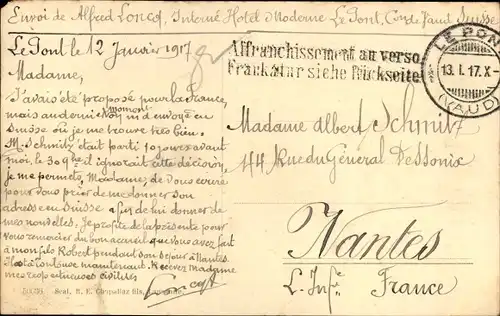 Envoi de Alfred Loncq, Interné Hotel Moderne Le Pont, Con de Vaud Suisse
Le Pont le 12 Janvier 1917
Madame,
J'avais été proposé pour la France,
mais au dernier moment on m'a envoyé en
Suisse où je me trouve très bien.
M. Schmitz était parti 10 jours avant
moi, le 30 9bre il ignorait cette décision,
je me permets, Madame, de vous écrire
pour vous prier de me donner son
adresse en Suisse afin de lui donner de
mes nouvelles. Je profite de la présente pour
vous remercier du bon accueil que vous avez fait
à mon fils Robert pendant son séjour à Nantes.
Il est à Toulouse maintenant. Recevez Madame
mes respectueuses civilités
Loncq
Affranchissement au verso
Frankatur siehe Rückseite
LE PONT
13. I. 17. X
(VAUD)
Madame Albert Schmitz
44 Rue du Général Dessonix
Nantes
L. Infre
France